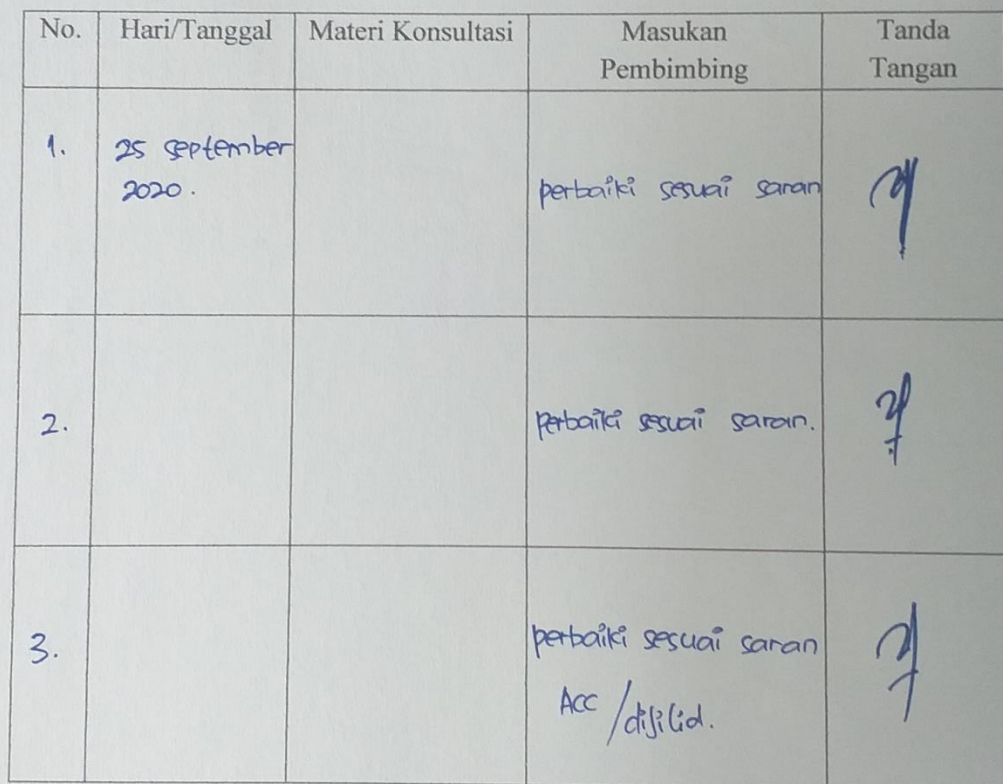 No. Hari/Tanggal Materi Konsultasi Masukan Pembimbing Tanda Tangan
1. 25 september 2020. perbaiki sesuai saran
2. perbaiki sesuai saran.
3. perbaiki sesuai saran
ACC / dijilid.